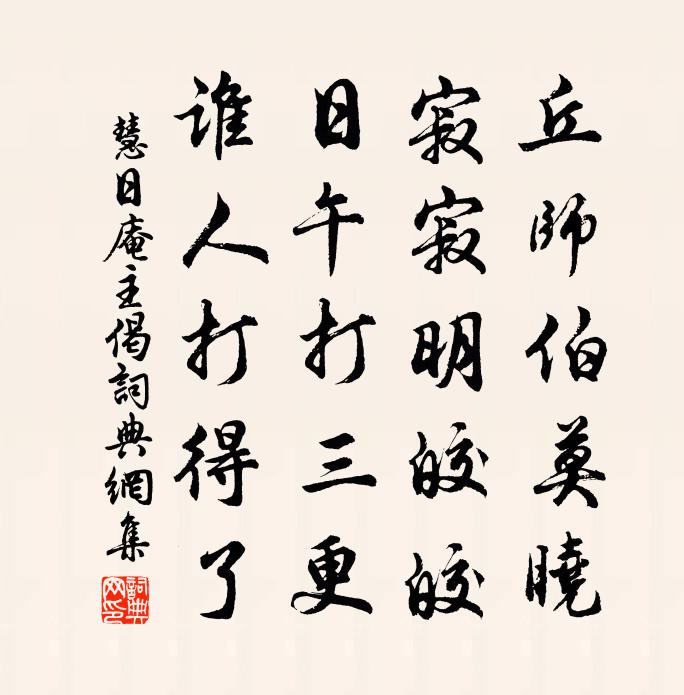 丘師伯莫曉
寂寂明皎皎
日午打三更
誰人打得了
慧日庵主偈詞典網集
詞典网印